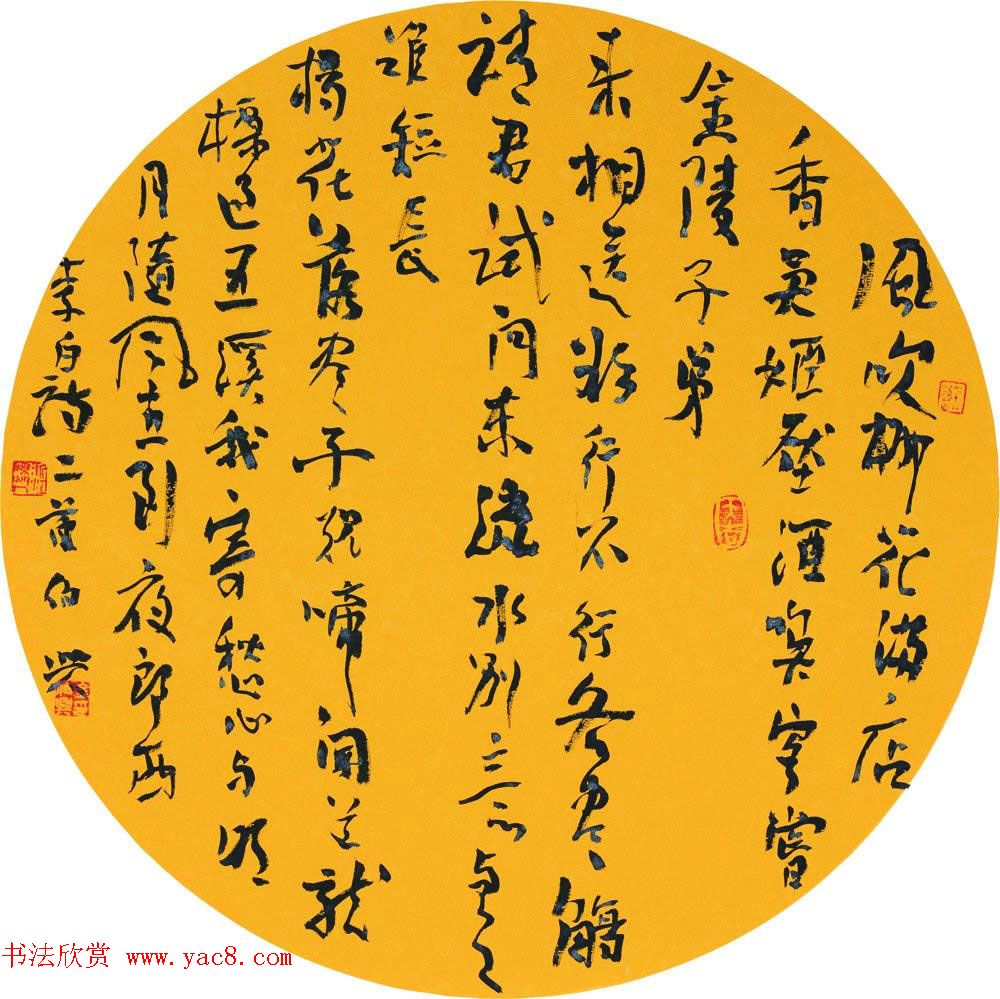 風吹柳花滿店
香吴姬壓酒唤客嘗
金陵子弟
来相送欲行不行各尽觴
請君試问東流水別意与之
谁短長
楊花落尽子規啼闻道龍
標過五溪我寄愁心与明
月隨風直到夜郎西
李白詩二首
书法欣赏 www.yac8.com